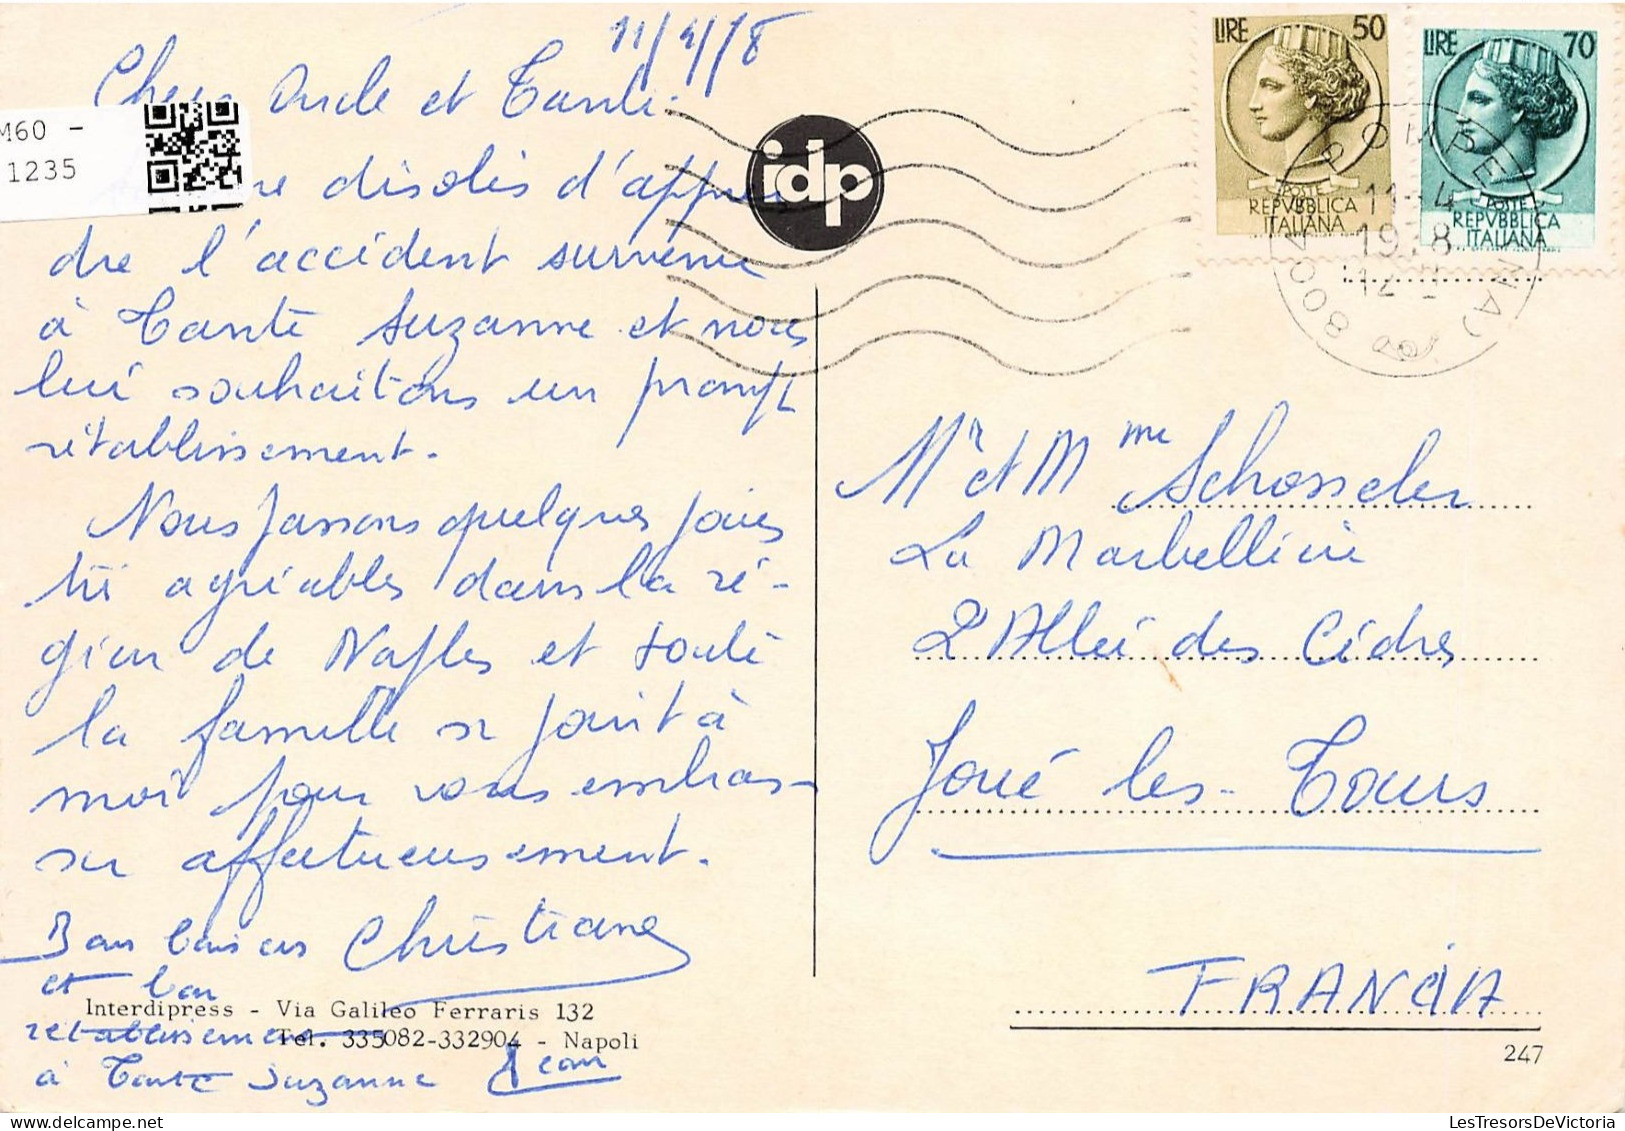 11/4/78
Chers Oncle et Tante.
M60 -
1235
désolés d'appren
dre l'accident survenue
à Tante Suzanne et nous
lui souhaitons un prompt
rétablissement.
Nous passons quelques jours
très agréables dans la ré-
gion de Naples et toute
la famille se joint à
moi pour vous embras-
ser affectueusement.
Bons baisers Christiane
et bon
rétablissement
à Tante Suzanne Jean
Interdipress - Via Galileo Ferraris 132
Tel. 335082-332904 - Napoli
idp
LIRE 50
POSTE
REPVBBLICA
ITALIANA
LIRE 70
POSTE
REPVBBLICA
ITALIANA
POMPEI
11-4
1978
Mr et Mme Schosseler
La Marbellière
2 Allée des Cèdres
Joué les-Tours
FRANCIA
247
LesTresorsDeVictoria.com